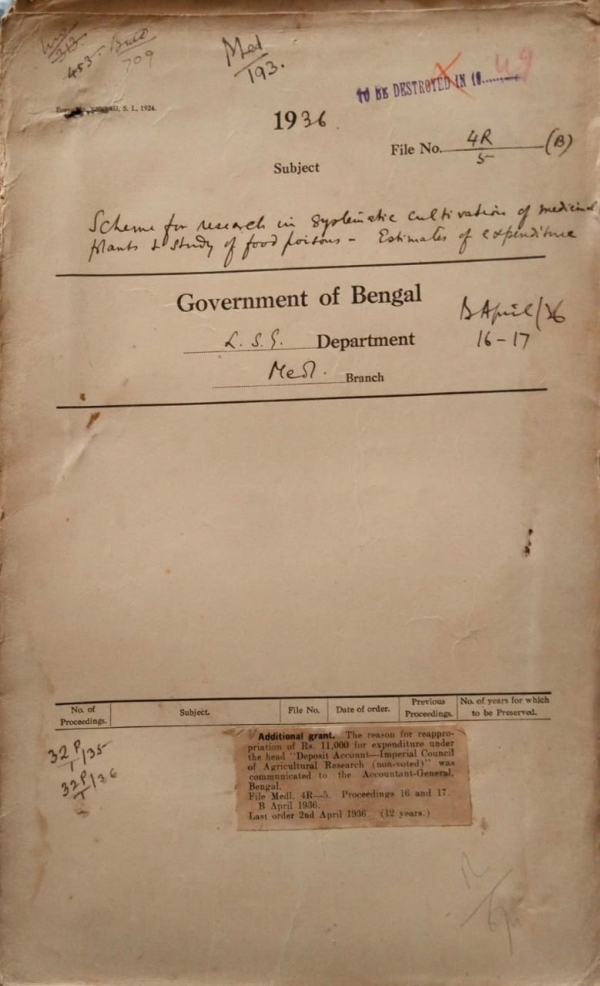 453
709
Med
193.
TO BE DESTROYED IN 19......... 49
S. I., 1924.
1936.
File No. 4R/5 (B)
Subject
Scheme for research in systematic cultivation of medicinal
plants & study of food poisons - Estimates of expenditure
Government of Bengal
L. S. G. Department
Medl. Branch
B April/36
16-17
No. of Proceedings. Subject. File No. Date of order. Previous Proceedings. No. of years for which to be Preserved.
32 P/1/35
32 P/1/36
Additional grant. The reason for reappro-
priation of Rs. 11,000 for expenditure under
the head "Deposit Account—Imperial Council
of Agricultural Research (non-voted)" was
communicated to the Accountant-General,
Bengal.
File Medl. 4R—5. Proceedings 16 and 17.
B April 1936.
Last order 2nd April 1936. (12 years.)